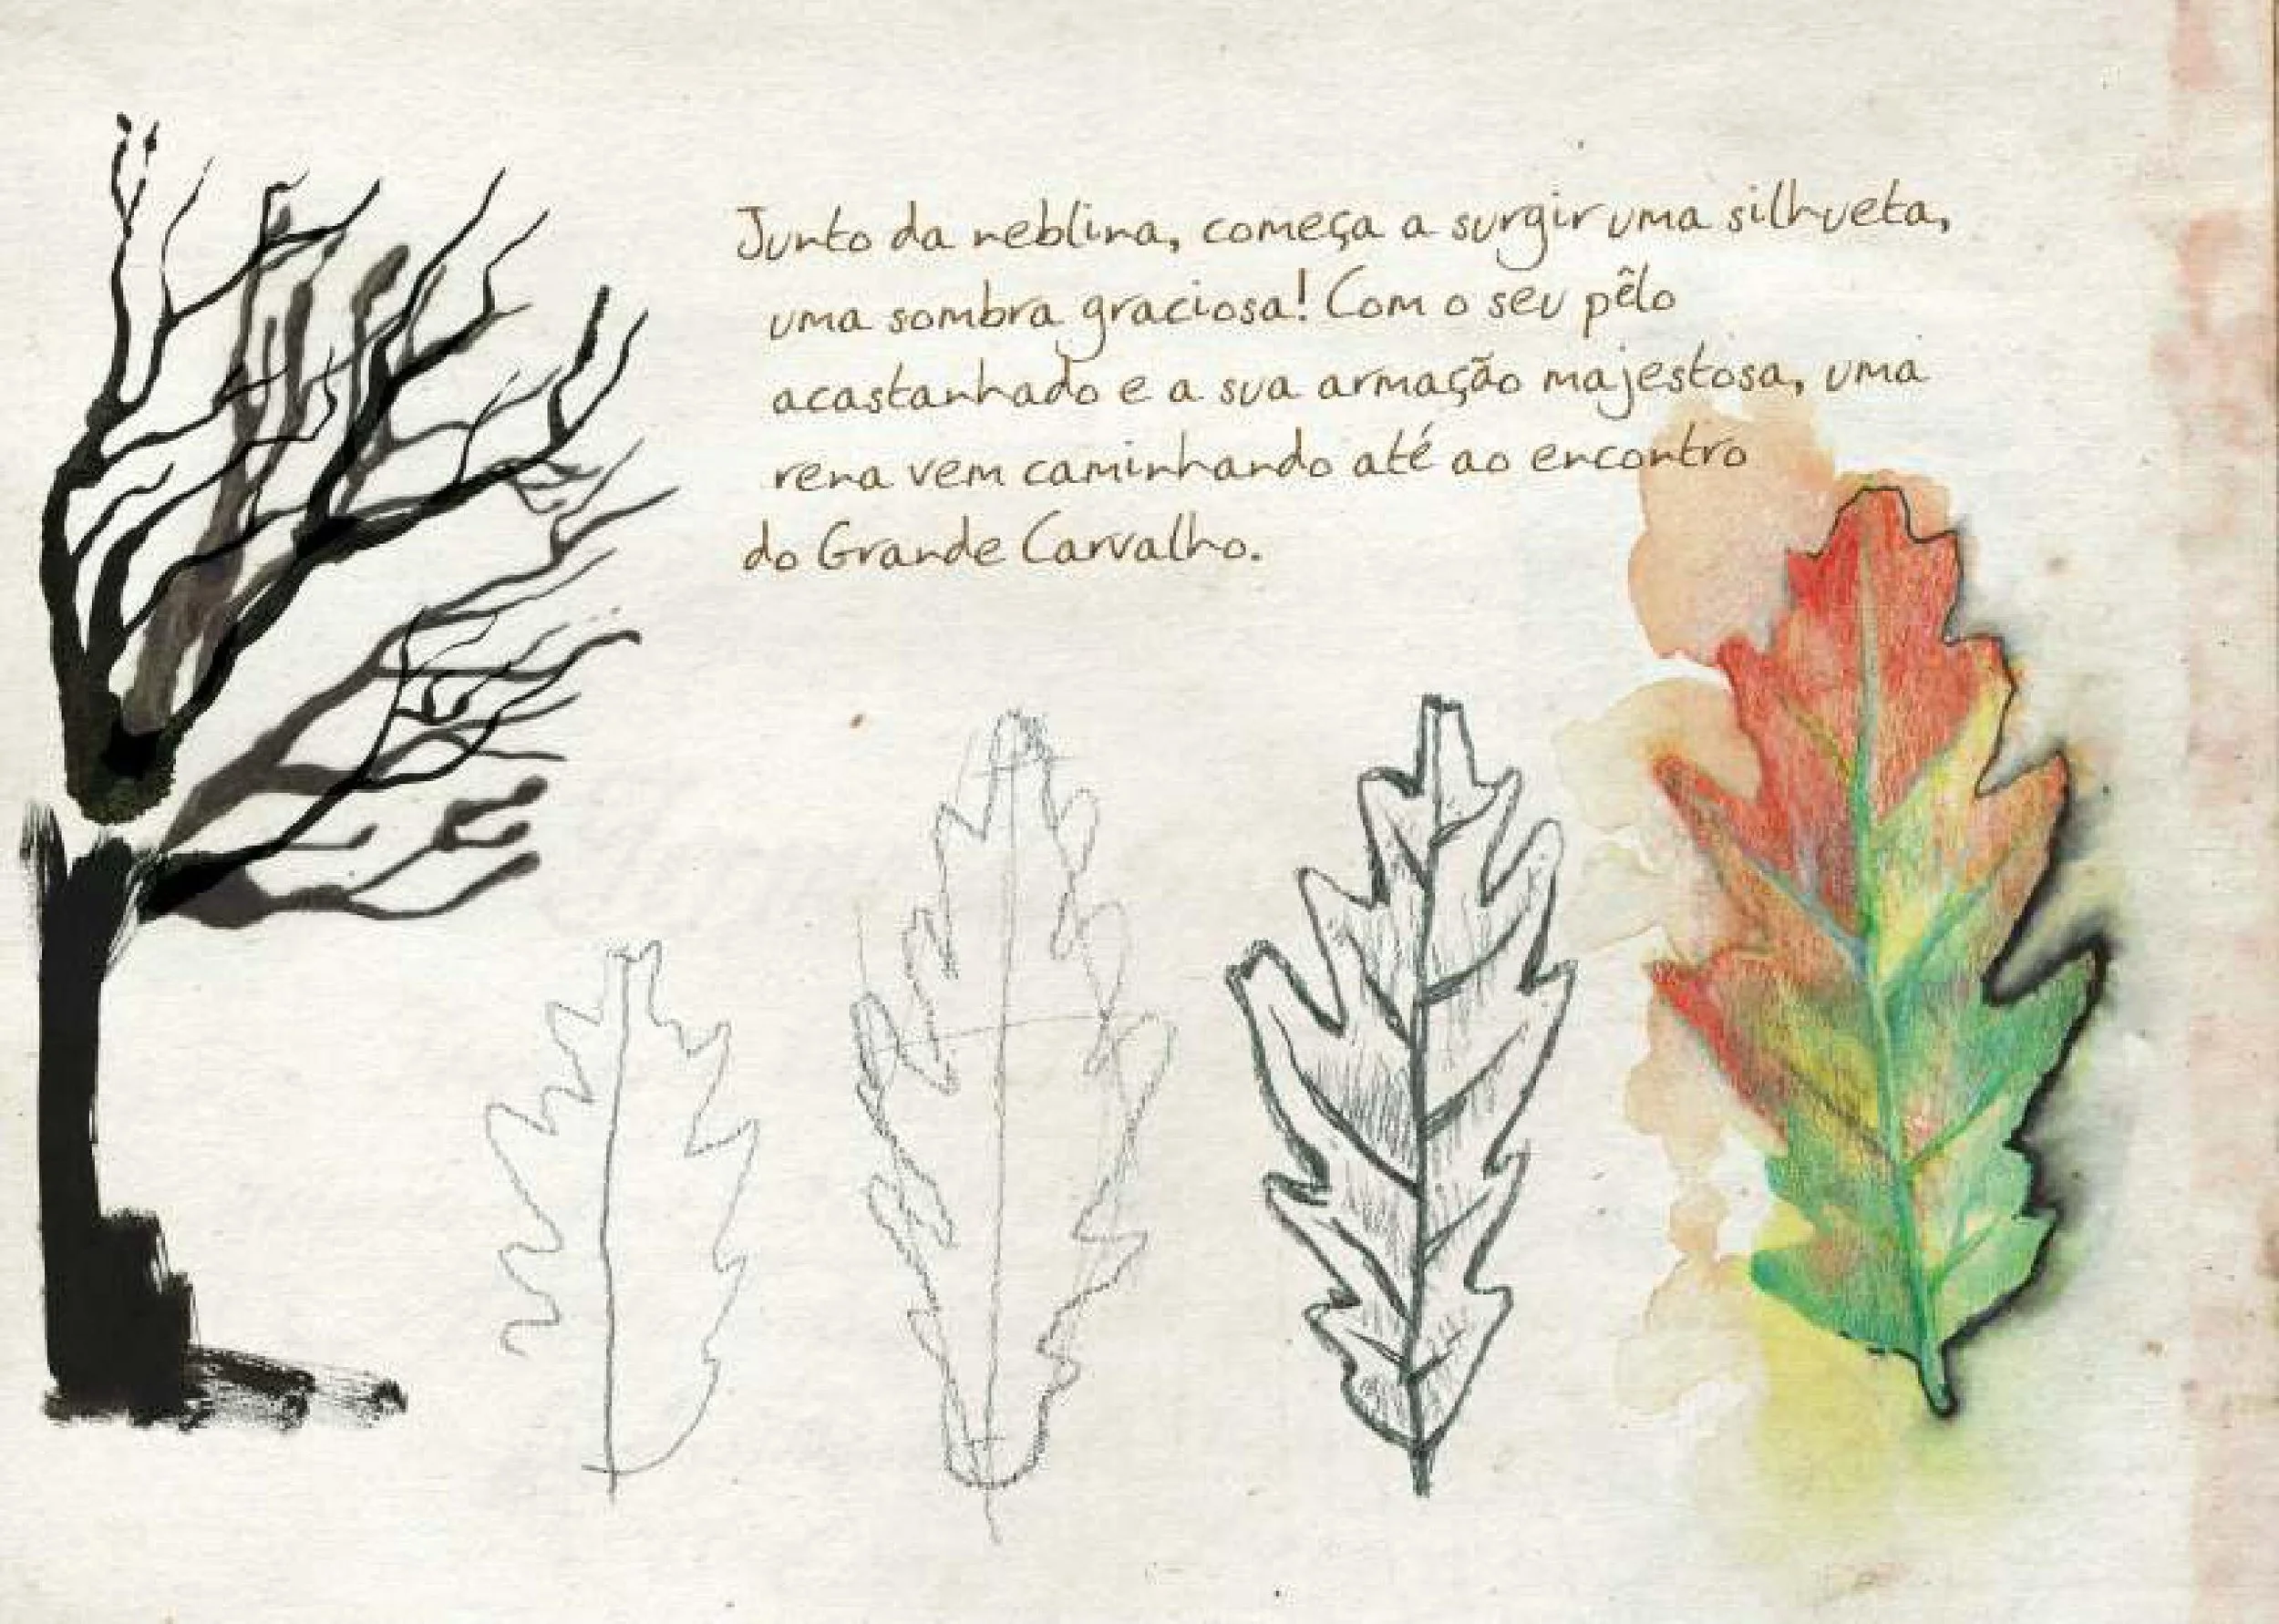 Junto da neblina, começa a surgir uma silhueta,
uma sombra graciosa! Com o seu pêlo
acastanhado e a sua armação majestosa, uma
rena vem caminhando até ao encontro
do Grande Carvalho.